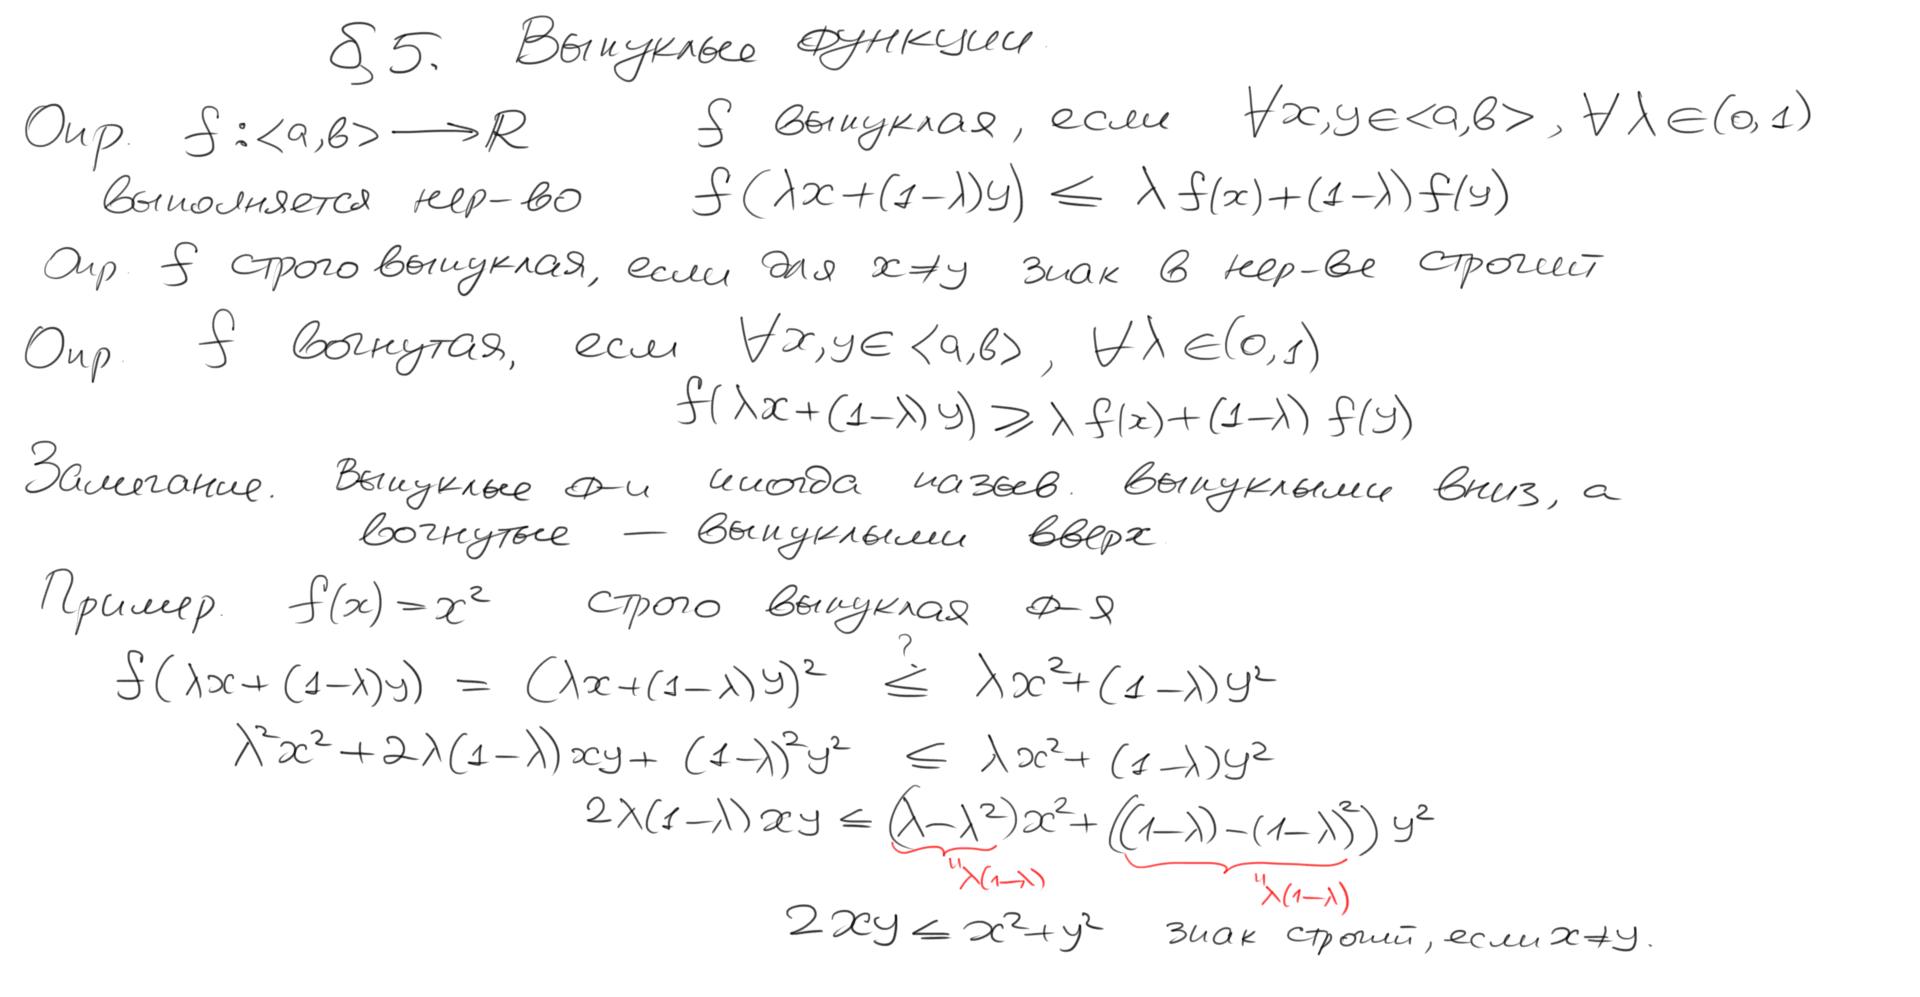 §5. Выпуклые функции
Опр. f:<a,b> ⟶ R f выпуклая, если ∀x,y∈<a,b>, ∀λ∈(0,1)
выполняется нер-во f(λx+(1-λ)y) ≤ λf(x)+(1-λ)f(y)
Опр f строго выпуклая, если для x≠y знак в нер-ве строгий
Опр. f вогнутая, если ∀x,y∈<a,b>, ∀λ∈(0,1)
f(λx+(1-λ)y) ≥ λf(x)+(1-λ)f(y)
Замечание. Выпуклые ф-и иногда назыв. выпуклыми вниз, а
вогнутые — выпуклыми вверх
Пример. f(x)=x² строго выпуклая ф-я
?
f(λx+(1-λ)y) = (λx+(1-λ)y)² ≤ λx²+(1-λ)y²
λ²x²+2λ(1-λ)xy+(1-λ)²y² ≤ λx²+(1-λ)y²
2λ(1-λ)xy ≤ (λ-λ²)x²+((1-λ)-(1-λ)²)y²
"λ(1-λ) "λ(1-λ)
2xy ≤ x²+y² знак строгий, если x≠y.